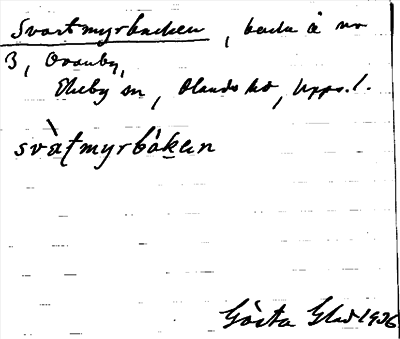 Svartmyrbacken, backe å nr
3, Ovanby,
Ekeby sn, Olands hd, Upps. l.
svàṭmyrbåk̲an
Gösta Glad 1936